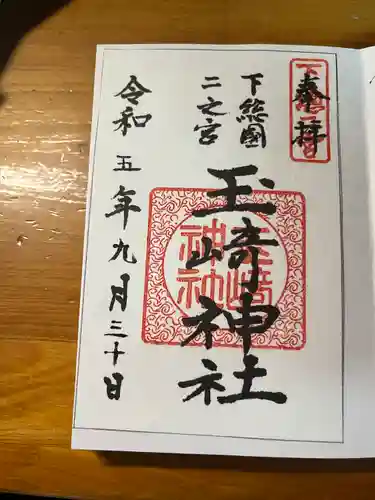 奉拝
下総國
二之宮
玉崎神社
令和五年九月三十日
玉崎
神社